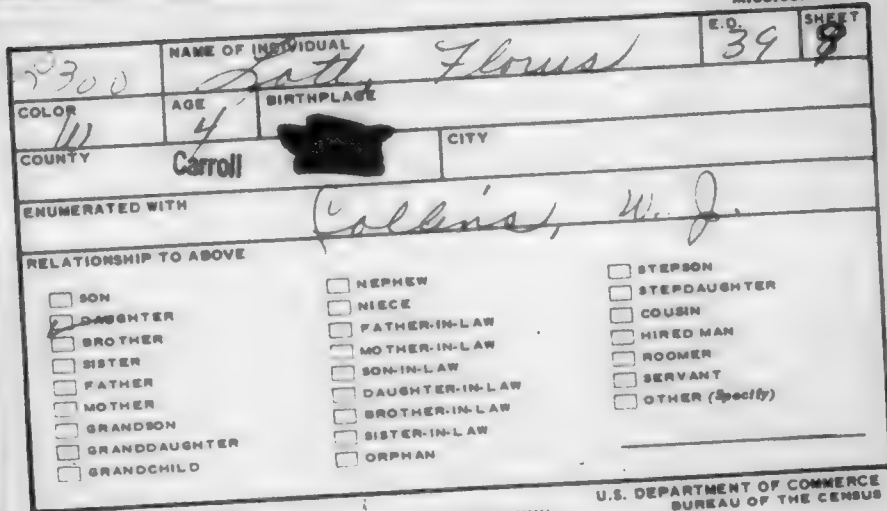 NAME OF INDIVIDUAL E.D. SHEET
300 Lott, Florus 39 8
COLOR AGE BIRTHPLACE
W 4
COUNTY Carroll CITY
ENUMERATED WITH Collins, W. J.
RELATIONSHIP TO ABOVE
SON
DAUGHTER
BROTHER
SISTER
FATHER
MOTHER
GRANDSON
GRANDDAUGHTER
GRANDCHILD
NEPHEW
NIECE
FATHER-IN-LAW
MOTHER-IN-LAW
SON-IN-LAW
DAUGHTER-IN-LAW
BROTHER-IN-LAW
SISTER-IN-LAW
ORPHAN
STEPSON
STEPDAUGHTER
COUSIN
HIRED MAN
ROOMER
SERVANT
OTHER (Specify)
U.S. DEPARTMENT OF COMMERCE
BUREAU OF THE CENSUS